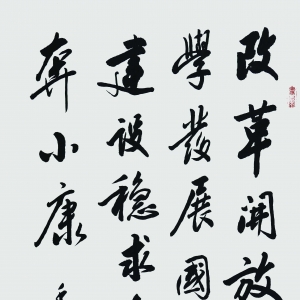 改革開放
學發展國
建設穩求
奔小康